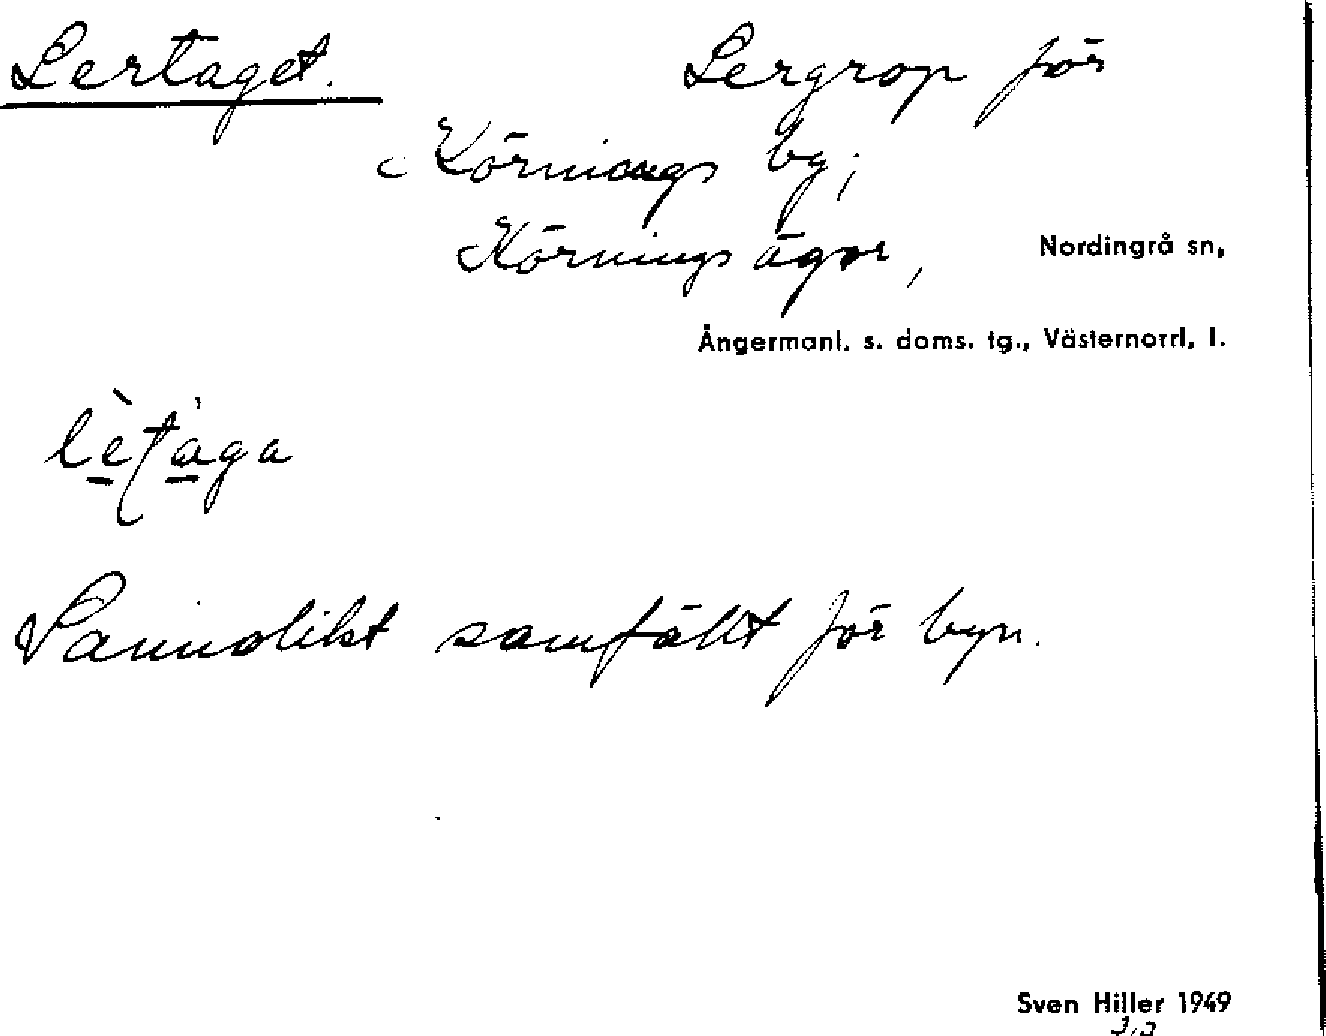 Lertaget. Lergrop för
Körnings by;
Körnings ägor, Nordingrå sn,
Ångermanl. s. doms. tg., Västernorrl. l.
Sannolikt samfällt för byn.
Sven Hiller 1949